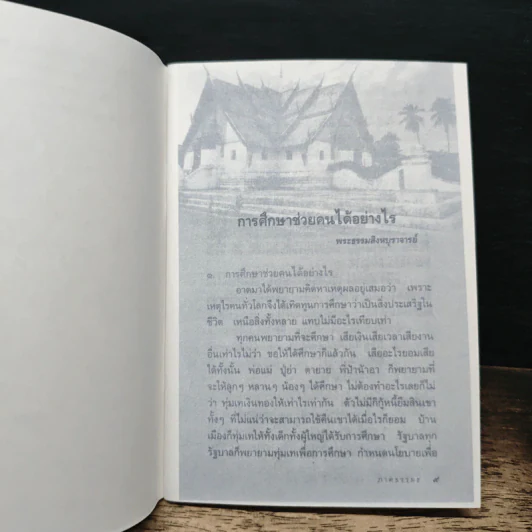 การศึกษาช่วยคนได้อย่างไร
พระธรรมสิงหบุราจารย์
๑. การศึกษาช่วยคนได้อย่างไร
อาตมาได้พยายามคิดหาเหตุผลอยู่เสมอว่า เพราะ
เหตุไรคนทั่วโลกจึงได้เทิดทูนการศึกษาว่าเป็นสิ่งประเสริฐใน
ชีวิต เหนือสิ่งทั้งหลาย แทบไม่มีอะไรเทียบเท่า
ทุกคนพยายามที่จะศึกษา เสียเงินเสียเวลาเสียงาน
อื่นเท่าไรไม่ว่า ขอให้ได้ศึกษาก็แล้วกัน เสียอะไรยอมเสีย
ได้ทั้งนั้น พ่อแม่ ปู่ย่า ตายาย พี่ป้าน้าอา ก็พยายามที่
จะให้ลูกๆ หลานๆ น้องๆ ได้ศึกษา ไม่ต้องทำอะไรเลยก็ไม่
ว่า ทุ่มเทเงินทองให้เท่าไรเท่ากัน ตัวไม่มีก็กู้หนี้ยืมสินเขา
ทั้งๆ ที่ไม่แน่ว่าจะสามารถใช้คืนเขาได้เมื่อไรก็ยอม บ้าน
เมืองก็ทุ่มเทให้ทั้งเด็กทั้งผู้ใหญ่ได้รับการศึกษา รัฐบาลทุก
รัฐบาลก็พยายามทุ่มเทเพื่อการศึกษา กำหนดนโยบายเพื่อ
ภาคธรรม ๙